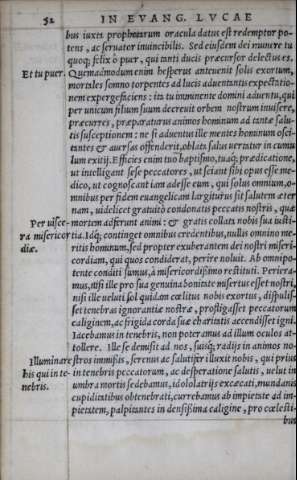 52 IN EVANG. LVCAE
bus iuxta prophetarum oracula datus est redemptor po-
tens, ac seruator inuincibilis. Sed eiusdem dei munere tu
quoq; felix ô puer, qui tanti ducis præcursor delectus es.
Et tu puer. Quemadmodum enim hesperus anteuenit solis exortum,
mortales somno torpentes ad lucis aduentantis expectatio-
nem expergefaciens: ita tu imminente domini aduentu, qui
per unicum filium suum decreuit orbem nostrum inuisere,
præcurres, præparaturus animos hominum ad tantæ salu-
tis susceptionem: ne si aduentus ille mentes hominum osci-
tantes & auersas offenderit, oblata salus uertatur in cumu
lum exitij. Efficies enim tuo baptismo, tuaq; prædicatione,
ut intelligant sese peccatores, ut sciant sibi opus esse me-
dico, ut cognoscant iam adesse eum, qui solus omnium, o-
mnibus per fidem euangelicam largiturus sit salutem æter
nam, uidelicet gratuitò condonatis peccatis nostris, quæ
Per uisce- mortem adferunt animi: & gratis collata nobis sua iusti-
ra misericor tia. Idq; continget omnibus credentibus, nullis omnino me-
diæ. ritis hominum, sed propter exuberantem dei nostri miseri-
cordiam, qui quos condiderat, perire noluit. Ab omnipo-
tente conditi sumus, à misericordissimo restituti. Periera-
mus, nisi ille pro sua genuina bonitate misertus esset nostri,
nisi ille ueluti sol quidam cælitus nobis exortus, dispulis-
set tenebras ignorantiæ nostræ, profligasset peccatorum
caliginem, ac frigida corda suæ charitatis accendisset igni.
Iacebamus in tenebris, non poteramus ad illum oculos at-
tollere. Ille se demisit ad nos, suisq; radijs in animos no-
Illuminare stros immissis, serenus ac salutifer illuxit nobis, qui prius
his qui in te- in tenebris peccatorum, ac desperatione salutis, uelut in
nebris. umbra mortis sedebamus, idololatrijs excæcati, mundanis
cupiditatibus obtenebrati, currebamus ab impietate ad im-
pietatem, palpitantes in densissima caligine, pro cœlesti-
bus